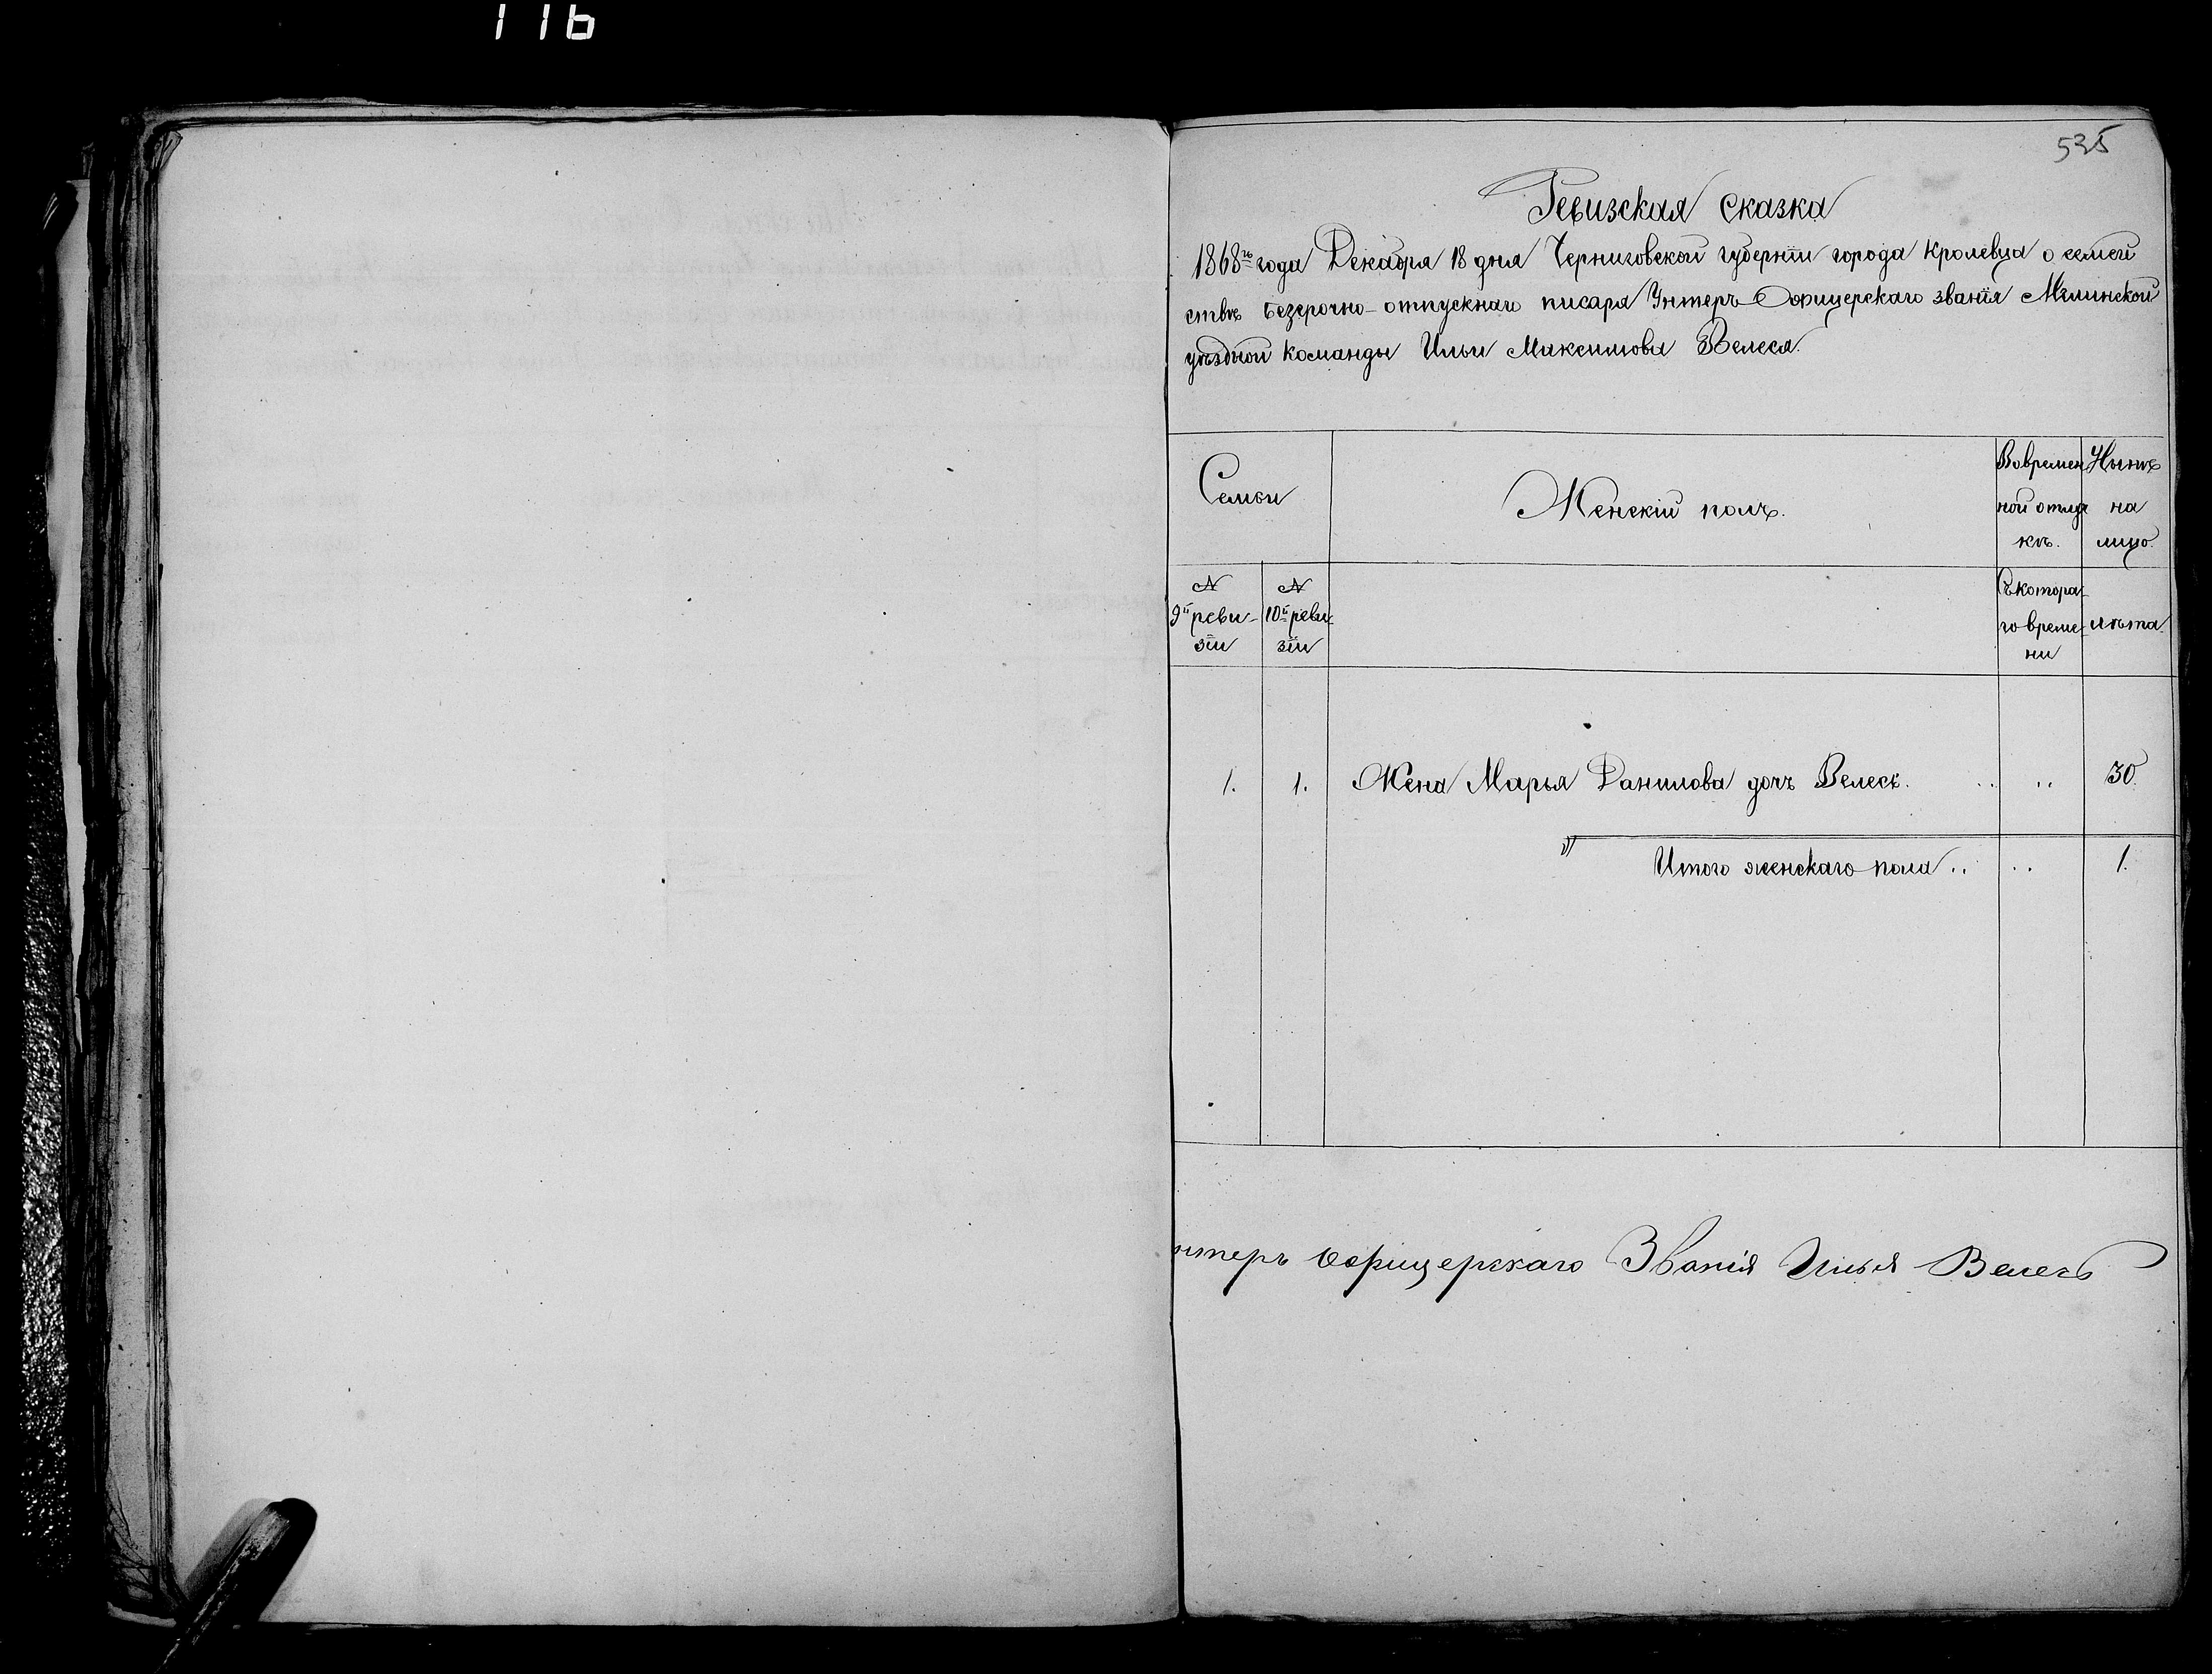 116
535
Ревизская сказка
1868го года Декабря 18 дня Черниговской губернїи города Кролевца о семей
ствѣ безсрочно-отпускнаго писаря Унтеръ Офицерскаго званїя Мглинской
уѣздной команды Ильи Максимова Велеса.
Семьи
Женскій полъ.
Во времен
ной отлуч
кѣ.
Нынѣ
на
лицо.
N
9й реви-
зїи
N
10й реви-
зїи
Съ котора-
го време-
ни
лѣта
1. 1. Жена Марья Данилова дочь Велесъ. . . . . 30.
Итого женскаго пола . . . . 1.
нтеръ Офицерскаго Званія Илья Велесъ